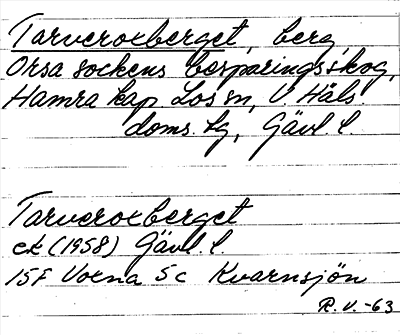 Tarveroxberget, berg,
Orsa sockens besparingsskog,
Hamra kap. Los sn, V. Häls.
doms. lg, Gävl. l.
Tarveroxberget
ek (1958) Gävl. l
15F Voxna 5c Kvarnsjön
R.V. -63